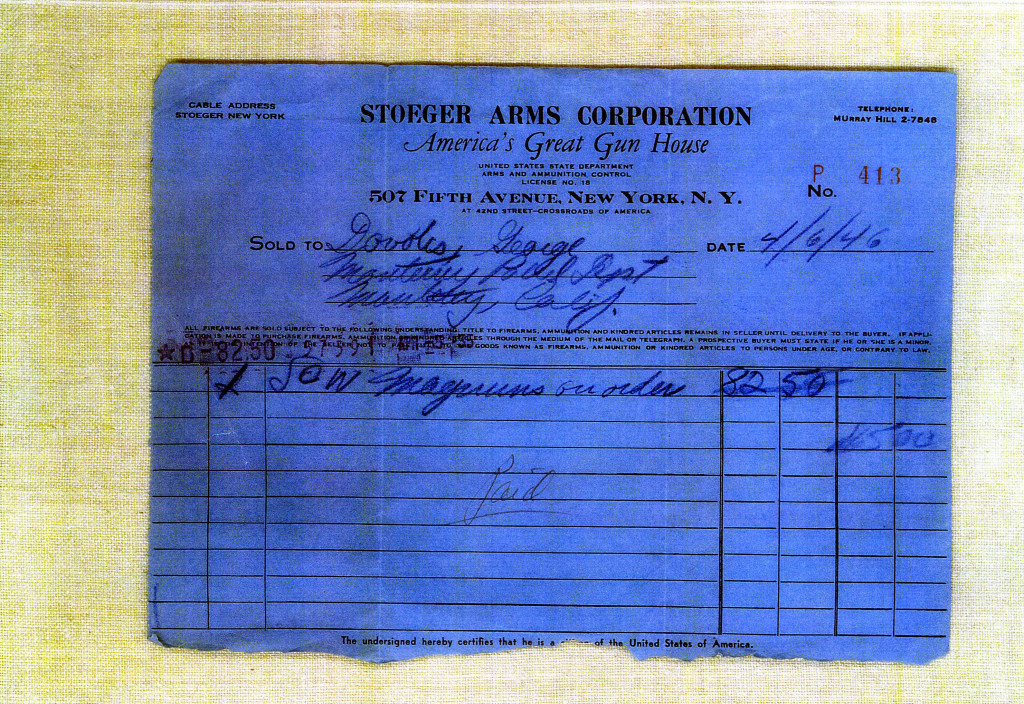 CABLE ADDRESS
STOEGER NEW YORK
STOEGER ARMS CORPORATION
America's Great Gun House
UNITED STATES STATE DEPARTMENT
ARMS AND AMMUNITION CONTROL
LICENSE NO. 18
507 FIFTH AVENUE, NEW YORK, N. Y.
AT 42ND STREET—CROSSROADS OF AMERICA
TELEPHONE:
MURRAY HILL 2-7848
P 413
No.
SOLD TO George
DATE 4/6/46
Monterey Dept
Calif.
ALL FIREARMS ARE SOLD SUBJECT TO THE FOLLOWING UNDERSTANDING, TITLE TO FIREARMS, AMMUNITION AND KINDRED ARTICLES REMAINS IN SELLER UNTIL DELIVERY TO THE BUYER. IF APPLI-
CATION IS MADE TO PURCHASE FIREARMS, AMMUNITION OR KINDRED ARTICLES THROUGH THE MEDIUM OF THE MAIL OR TELEGRAPH, A PROSPECTIVE BUYER MUST STATE IF HE OR SHE IS A MINOR,
OF THE SELLER NOT TO GOODS KNOWN AS FIREARMS, AMMUNITION OR KINDRED ARTICLES TO PERSONS UNDER AGE, OR CONTRARY TO LAW.
82.50
1 S&W Magnums on order 82 50
Paid
The undersigned hereby certifies that he is a of the United States of America.